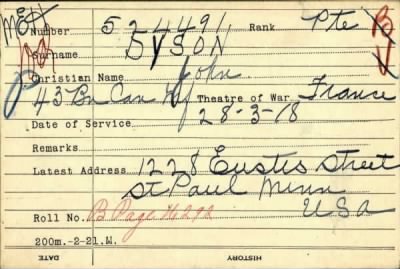 Number 524491 Rank Pte
Surname DYSON
Christian Name John
43 Bn Can Inf Theatre of War France
Date of Service 28-3-18
Remarks
Latest Address 1228 Eustis Street
St Paul Minn
USA
Roll No. B Page
200m.-2-21.M.
DATE HISTORY